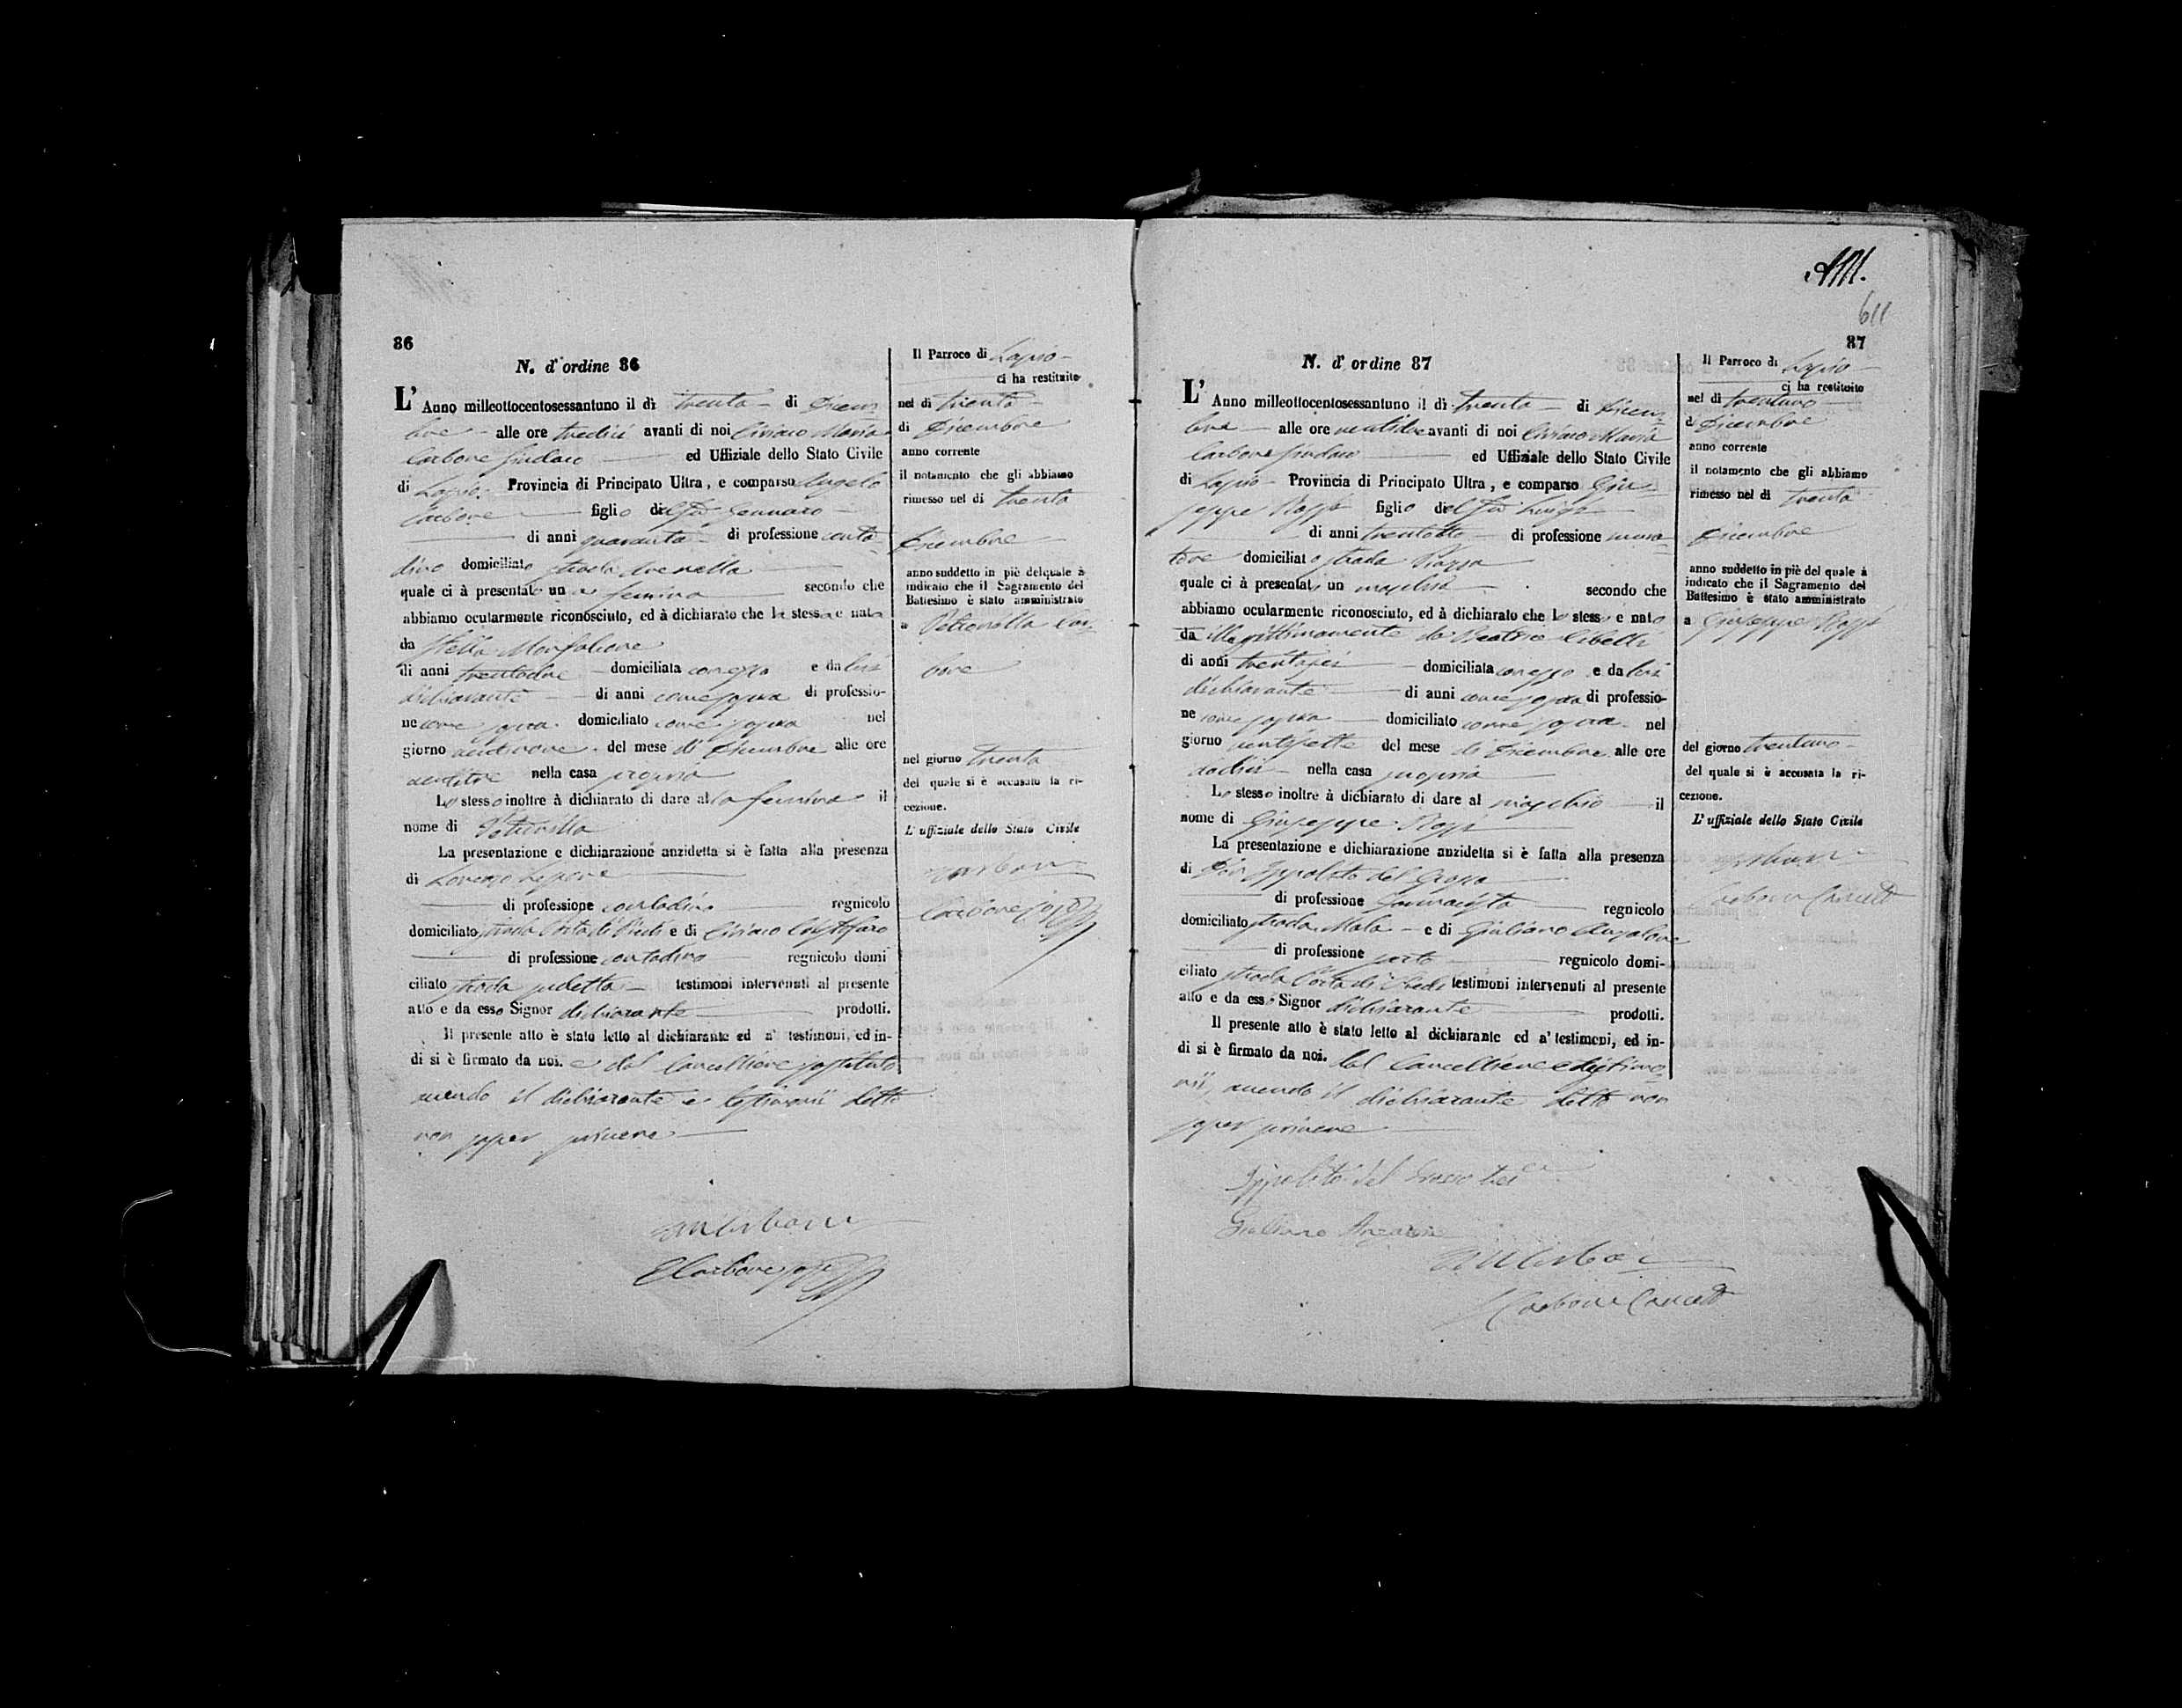 86
N. d'ordine 86
L'Anno milleottocentosessantuno il dì trenta di Dicem
bre alle ore tredici avanti di noi Ciriaco Maria
Carbone Sindaco ed Uffiziale dello Stato Civile
di Lapio Provincia di Principato Ultra, e comparso Angelo
Carbone figlio del fu Gennaro
di anni quaranta di professione conta
dino domiciliato strada
quale ci à presentato un a femina secondo che
abbiamo ocularmente riconosciuto, ed à dichiarato che la stessa e nata
da Stella
di anni trentadue domiciliata con esso e da lui
dichiarante di anni come sopra di professio-
ne come sopra domiciliato come sopra nel
giorno ventinove del mese di Dicembre alle ore
ventitre nella casa propria
Lo stesso inoltre à dichiarato di dare alla femina il
nome di Petronilla
La presentazione e dichiarazione anzidetta si è fatta alla presenza
di Lorenzo Lepore
di professione contadino regnicolo
domiciliato strada Porta di e di Ciriaco
di professione contadino regnicolo domi
ciliato strada sudetta testimoni intervenuti al presente
atto e da esso Signor dichiarante prodotti.
Il presente atto è stato letto al dichiarante ed a' testimoni, ed in-
di si è firmato da noi. e dal Cancelliere sostituto
avendo il dichiarante e testimonii detto
non saper scrivere
Il Parroco di Lapio
ci ha restituito
nel dì trenta
di Dicembre
anno corrente
il notamento che gli abbiamo
rimesso nel di trenta
Dicembre
anno suddetto in piè del quale à
indicato che il Sagramento del
Battesimo è stato amministrato
a Petronilla Car
bone
nel giorno trenta
del quale si è accusato la ri-
cezione.
L'uffiziale dello Stato Civile
611
87
N. d'ordine 87
L'Anno milleottocentosessantuno il dì trenta di Dicem
bre alle ore ventidue avanti di noi Ciriaco Maria
Carbone Sindaco ed Uffiziale dello Stato Civile
di Lapio Provincia di Principato Ultra, e comparso Giu
seppe figlio del fu Luigi
di anni trentotto di professione mura
tore domiciliato strada Piazza
quale ci à presentato un maschio secondo che
abbiamo ocularmente riconosciuto, ed à dichiarato che lo stesso è nato
da illegittimamente da Beatrice
di anni trentasei domiciliata con esso e da lui
dichiarante di anni come sopra di professio-
ne come sopra domiciliato come sopra nel
giorno ventisette del mese di Dicembre alle ore
dodici nella casa propria
Lo stesso inoltre à dichiarato di dare al maschio il
nome di Giuseppe
La presentazione e dichiarazione anzidetta si è fatta alla presenza
di Don Ippolito del Grosso
di professione farmacista regnicolo
domiciliato strada Mala e di Giuliano Anzalone
di professione sarto regnicolo domi-
ciliato strada Porta di testimoni intervenuti al presente
atto e da esso Signor dichiarante prodotti.
Il presente atto è stato letto al dichiarante ed a' testimoni, ed in-
di si è firmato da noi. dal Cancelliere e testimo
nii, avendo il dichiarante detto non
saper scrivere
Ippolito del Grosso
Giuliano Anzalone
Carbone
Il Parroco di Lapio
ci ha restituito
nel dì trentuno
di Dicembre
anno corrente
il notamento che gli abbiamo
rimesso nel di trenta
Dicembre
anno suddetto in piè del quale à
indicato che il Sagramento del
Battesimo è stato amministrato
a Giuseppe
del giorno trentuno
del quale si è accusata la ri-
cezione.
L'uffiziale dello Stato Civile